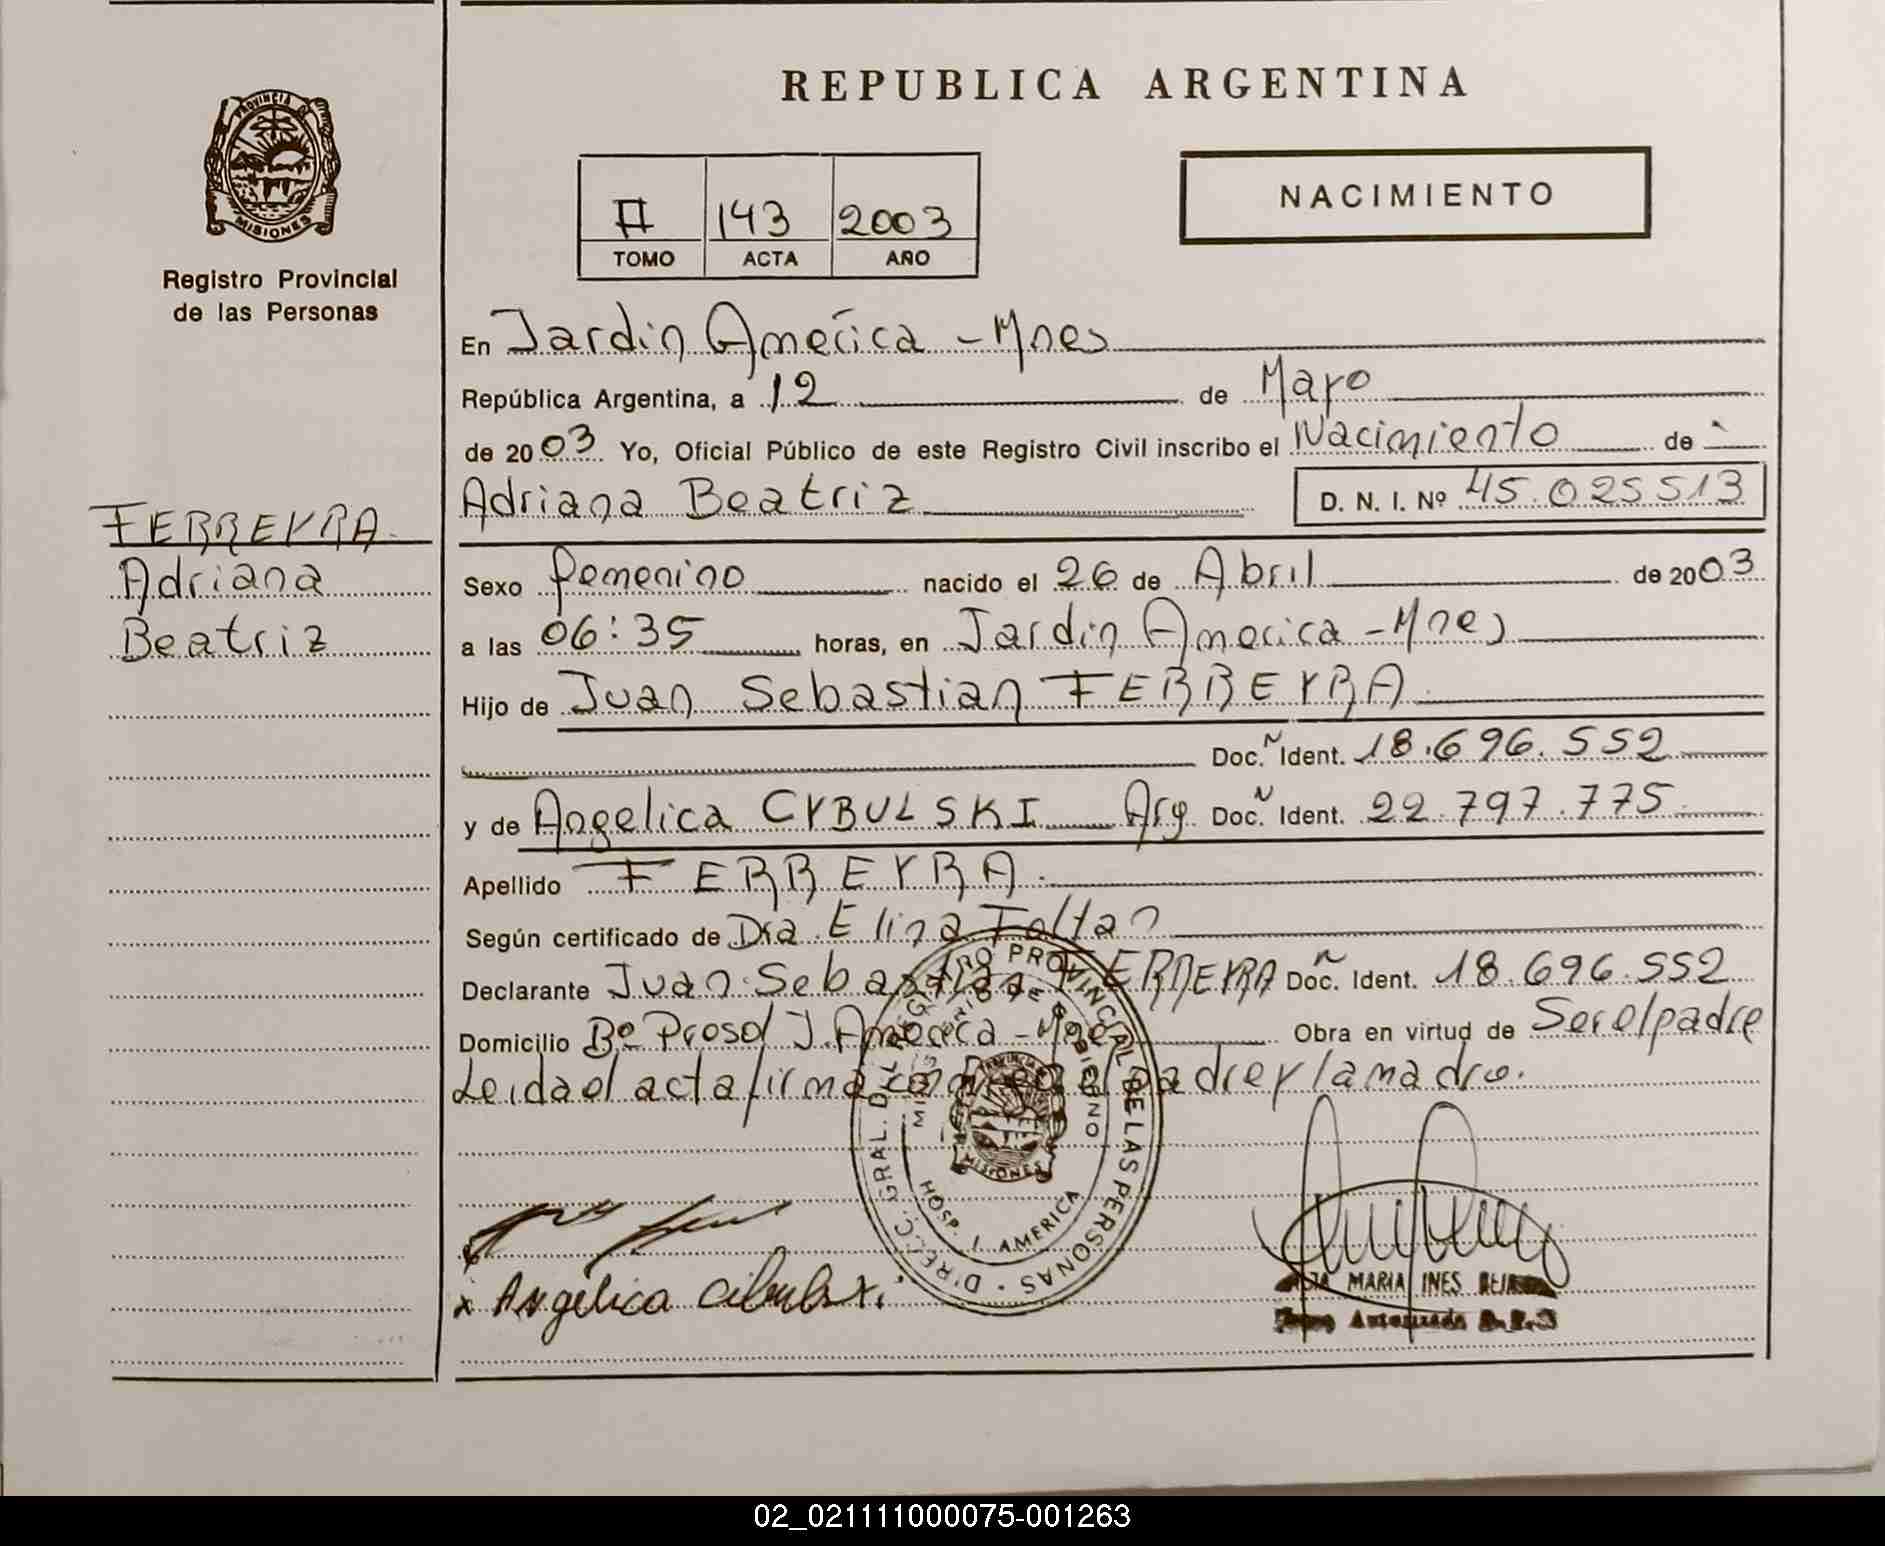 REPUBLICA ARGENTINA
PROVINCIA DE
MISIONES
Registro Provincial
de las Personas
NACIMIENTO
II 143 2003
TOMO ACTA AÑO
En Jardin America - Mnes
República Argentina, a 12 de Mayo
de 2003 Yo, Oficial Público de este Registro Civil inscribo el Nacimiento de
Adriana Beatriz D. N. I. Nº 45.025513
FERREYRA
Adriana
Beatriz
Sexo femenino nacido el 26 de Abril de 2003
a las 06:35 horas, en Jardin America - Mnes
Hijo de Juan Sebastian FERREYRA
Doc. Ident. 18.696.552
y de Angelica CYBULSKI Arg Doc. Ident. 22.797.775
Apellido FERREYRA
Según certificado de Dra. Elina
Declarante Juan Sebastian FERREYRA Doc. Ident. 18.696.552
Domicilio Bº Prosol J. America - Mnes Obra en virtud de Ser el padre
Leida el acta firma conmigo el padre y la madre.
DIREC. GRAL. DEL REGISTRO PROVINCIAL DE LAS PERSONAS
MINISTERIO DE GOBIERNO
PROVINCIA
MISIONES
HOSP. J. AMERICA
x Angelica
MARIA INES
02_021111000075-001263